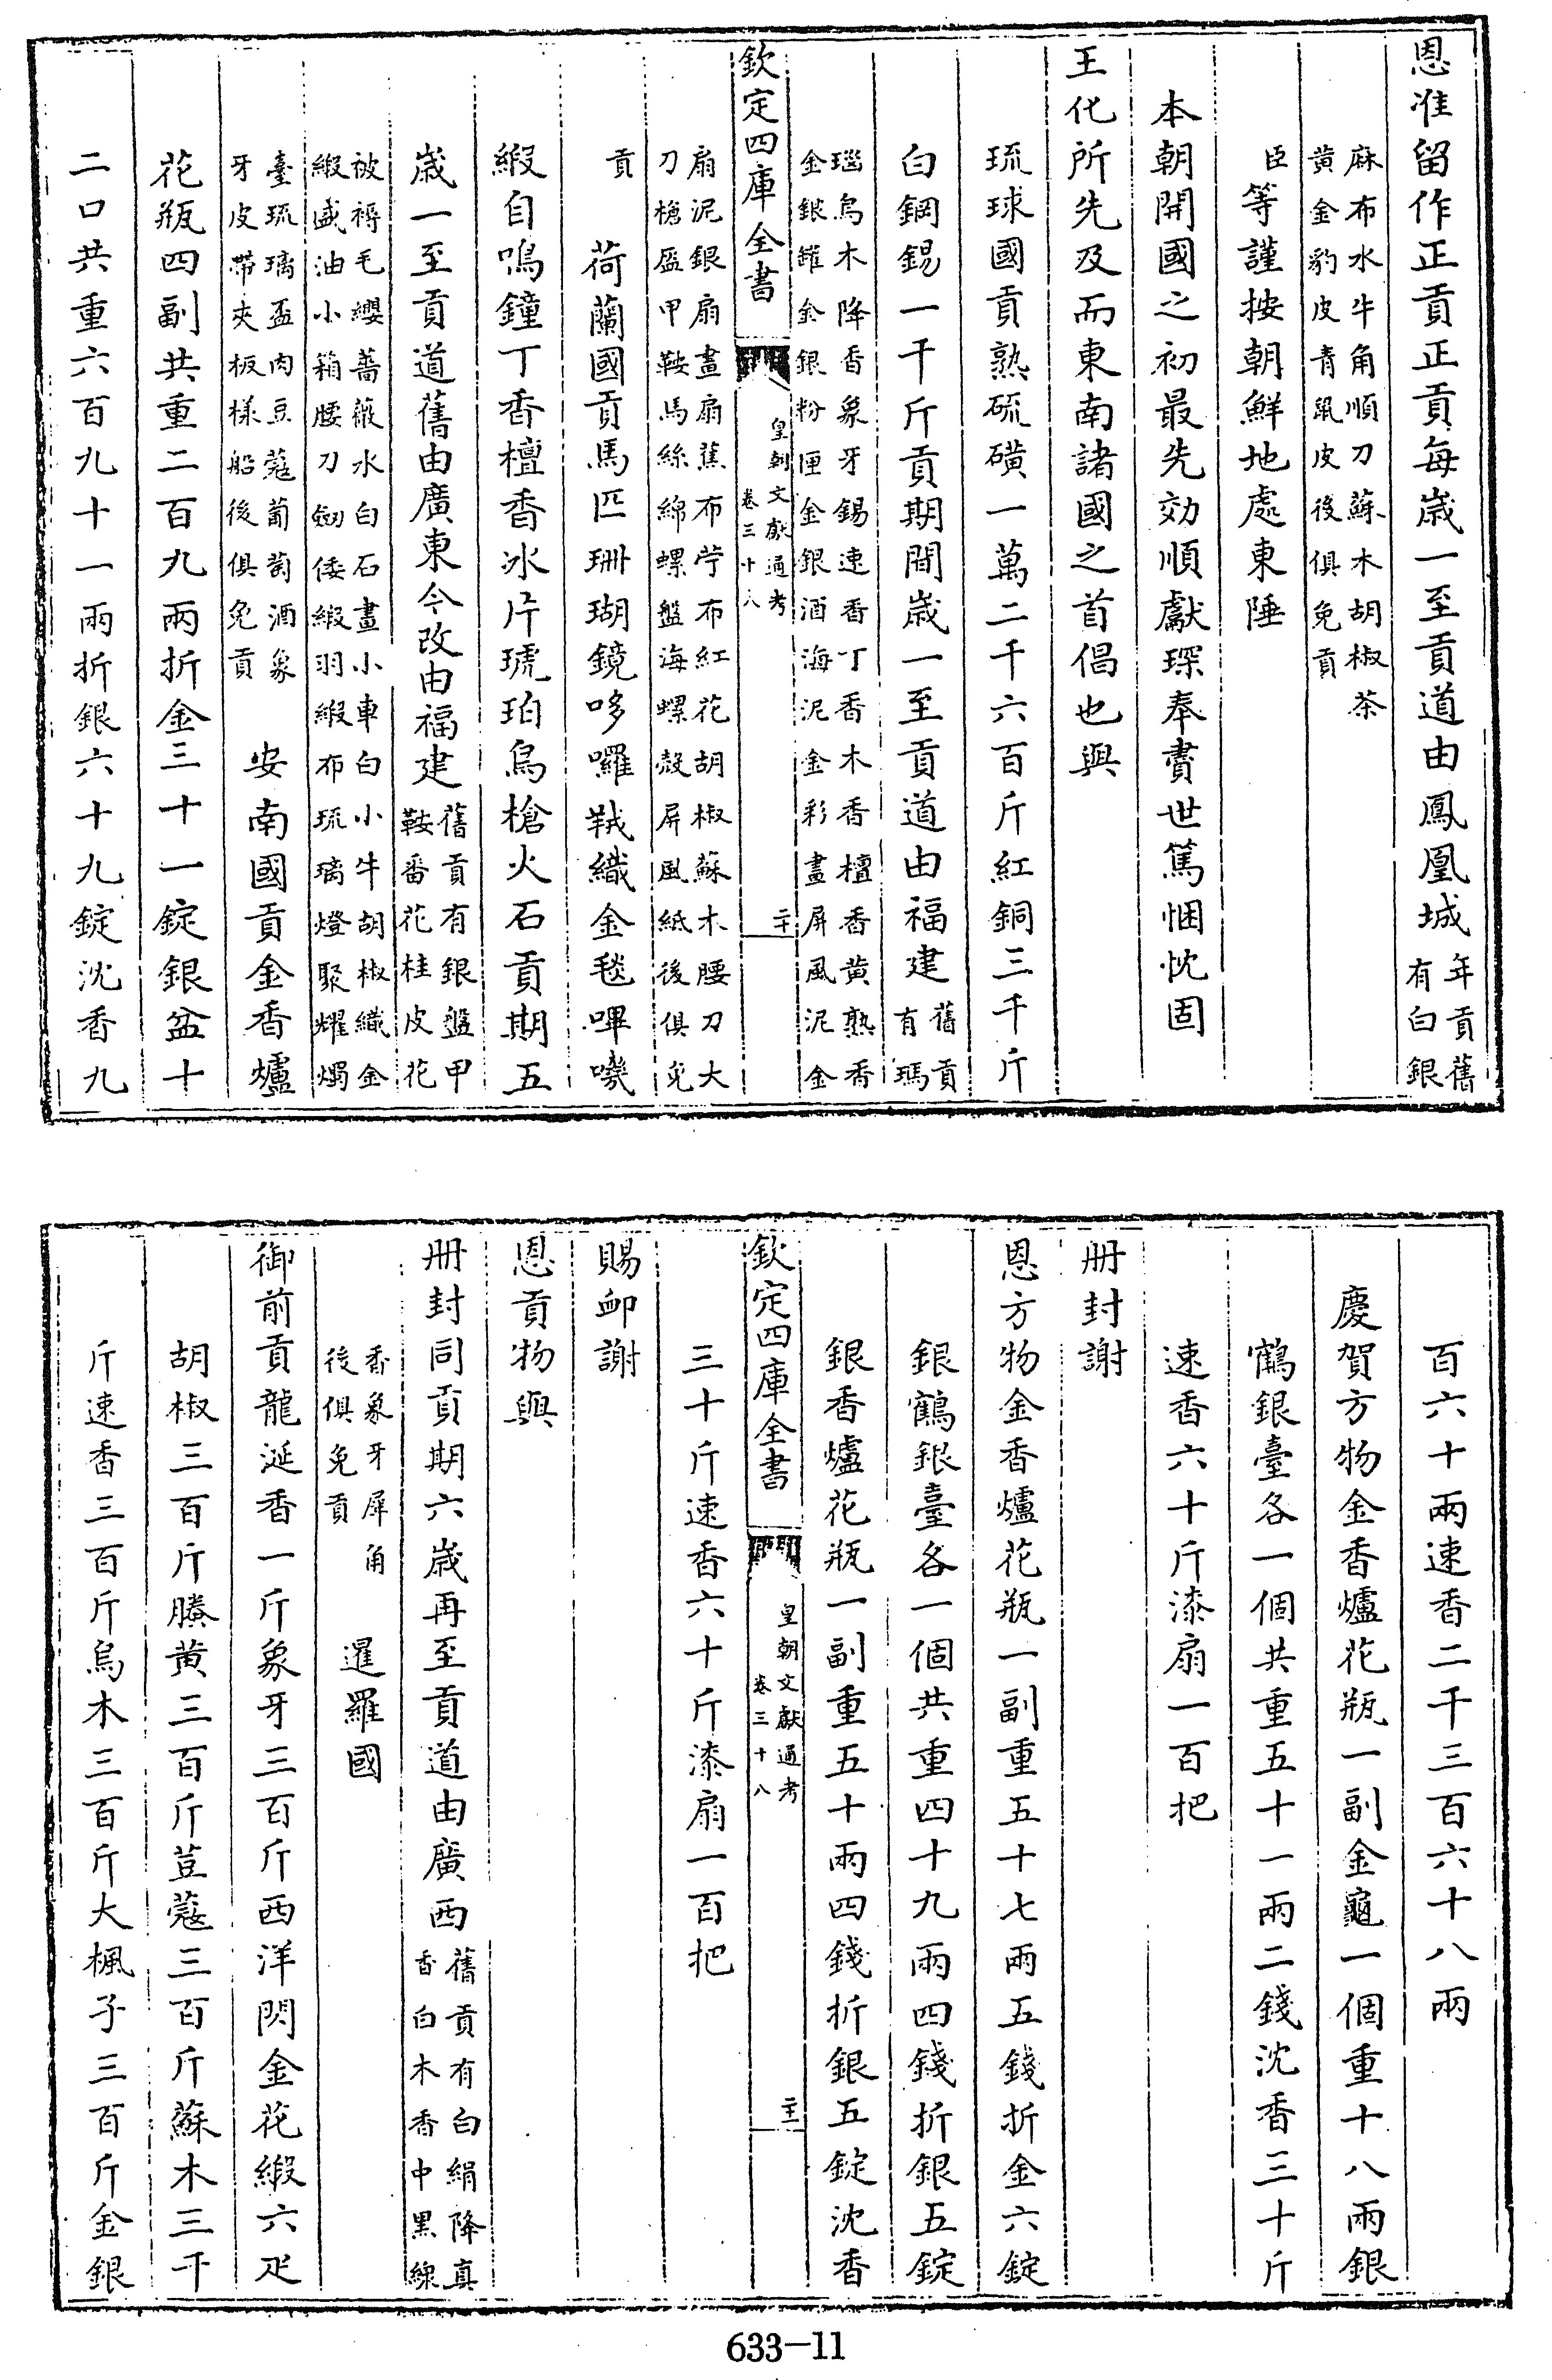 恩准留作正貢正貢每歳一至貢道由鳳凰城年貢舊有白銀
麻布水牛角順刀蘇木胡椒茶黄金豹皮青䑕皮後俱免貢
臣等謹按朝鮮地處東陲
本朝開國之初最先効順獻琛奉費世篤悃忱固
王化所先及而東南諸國之首倡也與
琉球國貢熟硫磺一萬二千六百斤紅銅三千斤
白鋼錫一千斤貢期間歳一至貢道由福建舊貢有瑪
瑙烏木降香象牙錫速香丁香木香檀香黄熟香金銀罐金銀粉匣金銀酒海泥金彩畫屏風泥金
欽定四庫全書 皇朝文獻通考卷三十八 二十
扇泥銀扇畫扇蕉布苧布紅花胡椒蘇木腰刀大刀槍盔甲鞍馬絲綿螺盤海螺殼屏風紙後俱免
貢 荷蘭國貢馬匹珊瑚鏡哆囉羢織金毯嗶嘰
緞自鳴鐘丁香檀香冰片琥珀鳥槍火石貢期五
歳一至貢道舊由廣東今改由福建舊貢有銀盤甲鞍番花桂皮花
被褥毛纓薔薇水白石畫小車白小牛胡椒織金緞盛油小箱腰刀劒倭緞羽緞布琉璃燈聚耀燭
臺琉璃盃肉豆蔻葡萄酒象牙皮帶夾板樣船後俱免貢 安南國貢金香爐
花瓶四副共重二百九兩折金三十一錠銀盆十
二口共重六百九十一兩折銀六十九錠沈香九
百六十兩速香二千三百六十八兩
慶賀方物金香爐花瓶一副金龜一個重十八兩銀
鶴銀臺各一個共重五十一兩二錢沈香三十斤
速香六十斤漆扇一百把
冊封謝
恩方物金香爐花瓶一副重五十七兩五錢折金六錠
銀鶴銀臺各一個共重四十九兩四錢折銀五錠
銀香爐花瓶一副重五十兩四錢折銀五錠沈香
欽定四庫全書 皇朝文獻通考卷三十八 二十一
三十斤速香六十斤漆扇一百把
賜䘏謝
恩貢物與
冊封同貢期六歳再至貢道由廣西舊貢有白絹降真香白木香中黑線
香象牙犀角後俱免貢 暹羅國
御前貢龍涎香一斤象牙三百斤西洋閃金花緞六疋
胡椒三百斤𦡁黄三百斤荳蔻三百斤蘇木三千
斤速香三百斤烏木三百斤大楓子三百斤金銀
633-11